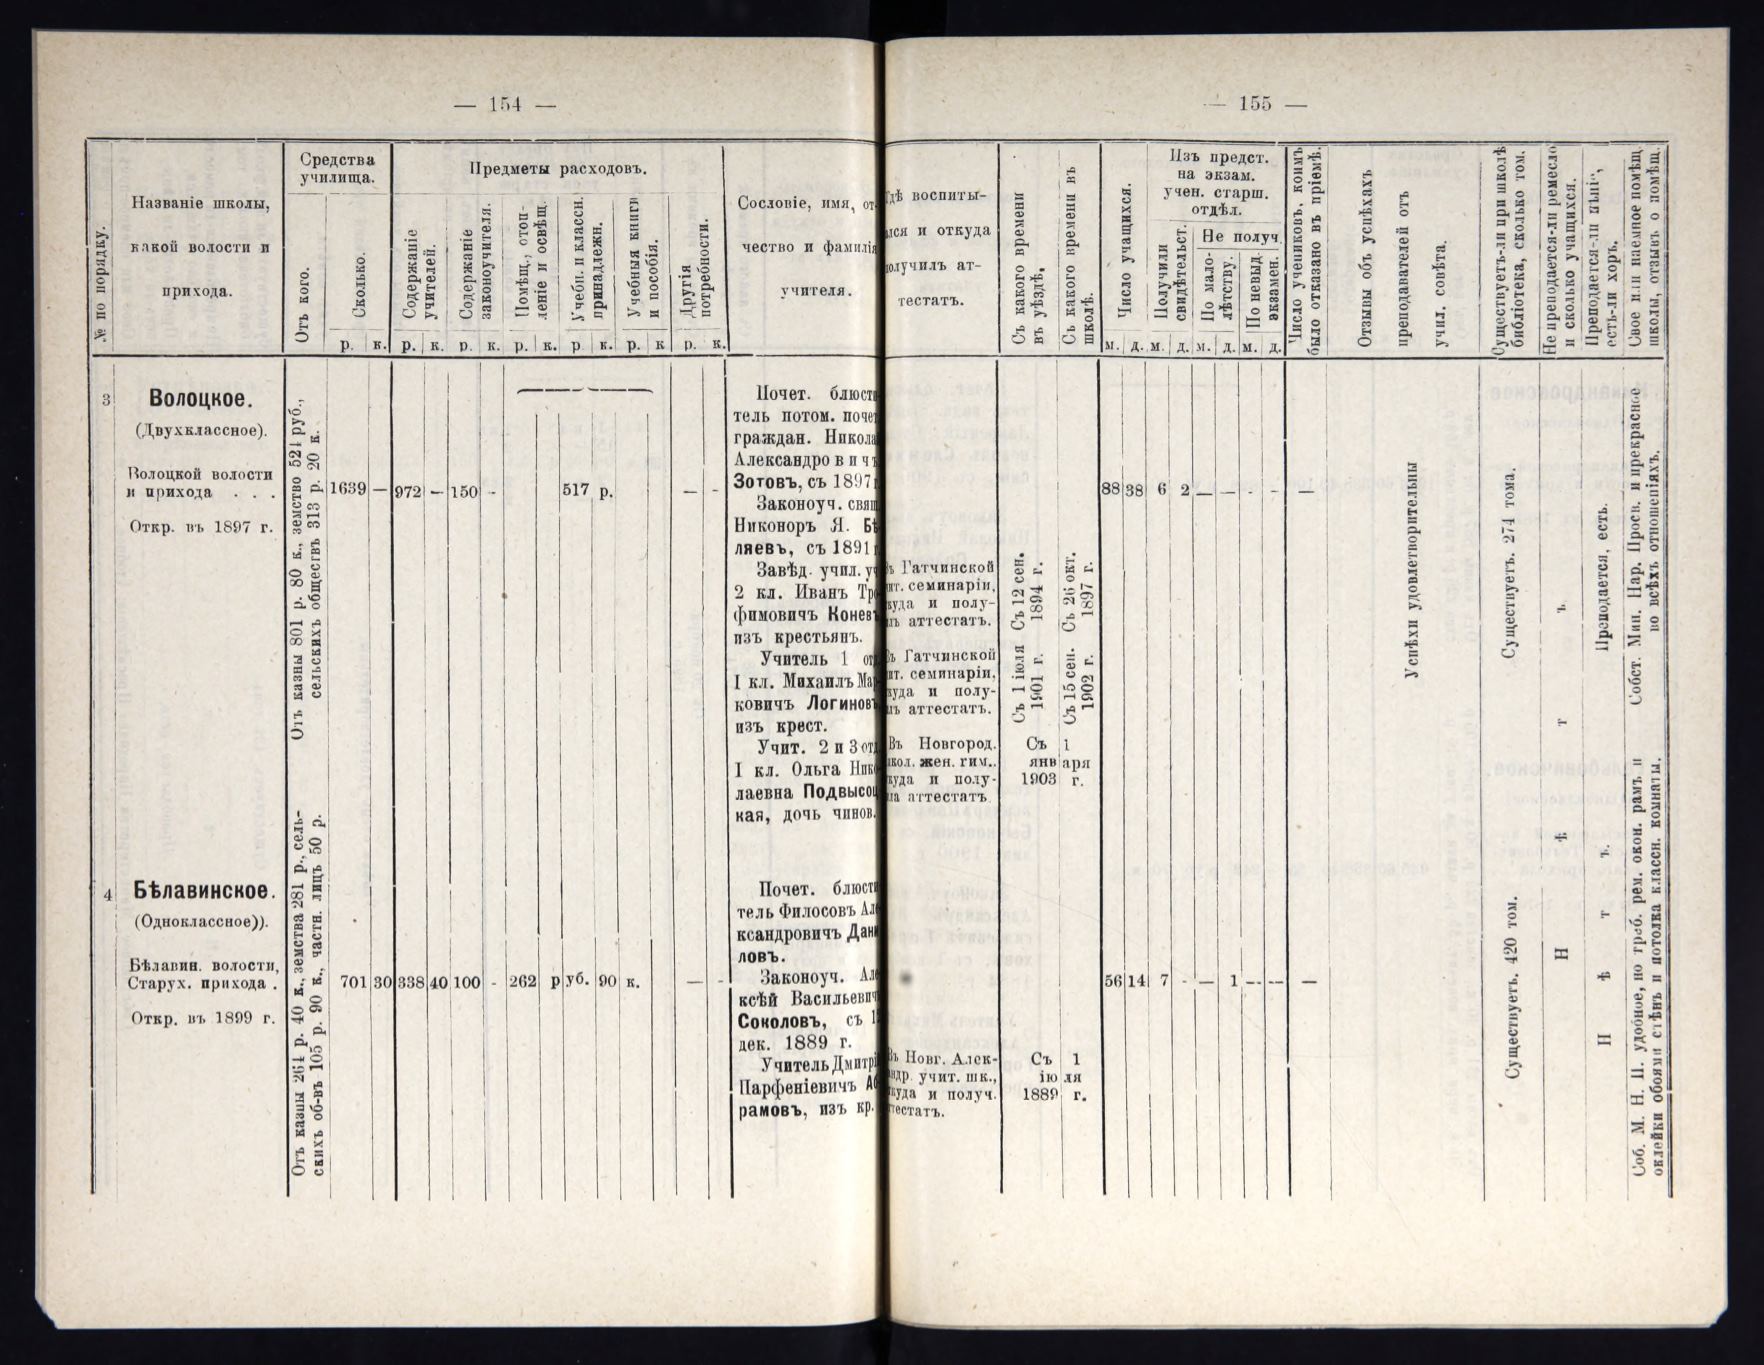 — 154 —
№ по порядку.
Названіе школы,
какой волости и
прихода.
Средства
училища.
Отъ кого.
Сколько.
р. к.
Предметы расходовъ.
Содержаніе
учителей.
Содержаніе
законоучителя.
Помѣщ., отоп-
леніе и освѣщ.
Учебн. и классн.
принадлежн.
Учебныя книги
и пособія.
Другія
потребности.
р. к. р. к. р. к. р к. р. к р. к.
Сословіе, имя, от-
чество и фамилія
учителя.
3
Волоцкое.
(Двухклассное).
Волоцкой волости
и прихода . . .
Откр. въ 1897 г.
Отъ казны 801 р. 80 к., земство 524 руб.,
сельскихъ обществъ 313 р. 20 к.
1639 — 972 — 150 - 517 р. — -
Почет. блюсти
тель потом. почет
граждан. Никола
Александровичъ
Зотовъ, съ 1897 г
Законоуч. свящ
Никоноръ Я. Бѣ
ляевъ, съ 1891 г
Завѣд. учил. уч
2 кл. Иванъ Тро
фимовичъ Коневъ
изъ крестьянъ.
Учитель 1 отд
I кл. Михаилъ Мар
ковичъ Логиновъ
изъ крест.
Учит. 2 и 3 отд
I кл. Ольга Нико
лаевна Подвысоц
кая, дочь чинов.
4
Бѣлавинское.
(Одноклассное)).
Бѣлавин. волости,
Старух. прихода .
Откр. въ 1899 г.
Отъ казны 264 р. 40 к., земства 281 р., сель-
скихъ об-въ 105 р. 90 к., частн. лицъ 50 р.
701 30 338 40 100 - 262 руб. 90 к. — -
Почет. блюсти
тель Филосовъ Але
ксандровичъ Дани
ловъ.
Законоуч. Але
ксѣй Васильевич
Соколовъ, съ 1
дек. 1889 г.
Учитель Дмитрі
Парфеніевичъ Аб
рамовъ, изъ кр.
— 155 —
Гдѣ воспиты-
лся и откуда
получилъ ат-
тестатъ.
Съ какого времени
въ уѣздѣ.
Съ какого времени въ
школѣ.
Число учащихся.
Изъ предст.
на экзам.
учен. старш.
отдѣл.
Получили
свидѣтельст.
Не получ.
По мало-
лѣтству.
По невыд.
экзамен.
м. д. м. д. м. д. м. д.
Число учениковъ, коимъ
было отказано въ пріемѣ.
Отзывы объ успѣхахъ
преподавателей отъ
учил. совѣта.
Существуетъ-ли при школѣ
библіотека, сколько том.
Не преподается-ли ремесло
и сколько учащихся.
Преподается-ли пѣніе,
есть-ли хоръ.
Свое или наемное помѣщ.
школы, отзывъ о помѣщ.
ъ Гатчинской
ит. семинаріи,
куда и полу-
лъ аттестатъ.
Съ 12 сен.
1894 г.
Съ 26 окт.
1897 г.
Въ Гатчинской
ит. семинаріи,
куда и полу-
лъ аттестатъ.
Съ 1 іюля
1901 г.
Съ 15 сен.
1902 г.
Въ Новгород.
кол. жен. гим.,
куда и полу-
ла аттестатъ.
Съ 1
января
1903 г.
88 38 6 2 — — - - —
Успѣхи удовлетворительны
Существуетъ. 274 тома.
Преподается, есть.
Собст. Мин. Нар. Просв. и прекрасное
во всѣхъ отношеніяхъ.
Въ Новг. Алек-
ндр. учит. шк.,
куда и получ.
тестатъ.
Съ 1
іюля
1889 г.
56 14 7 - — 1 -- — —
Существуетъ. 420 том.
Н ѣ т ъ
Н ѣ т ъ.
Соб. М. Н. П. удобное, но треб. рем. окон. рамъ и
оклейки обоями стѣнъ и потолка классн. комнаты.